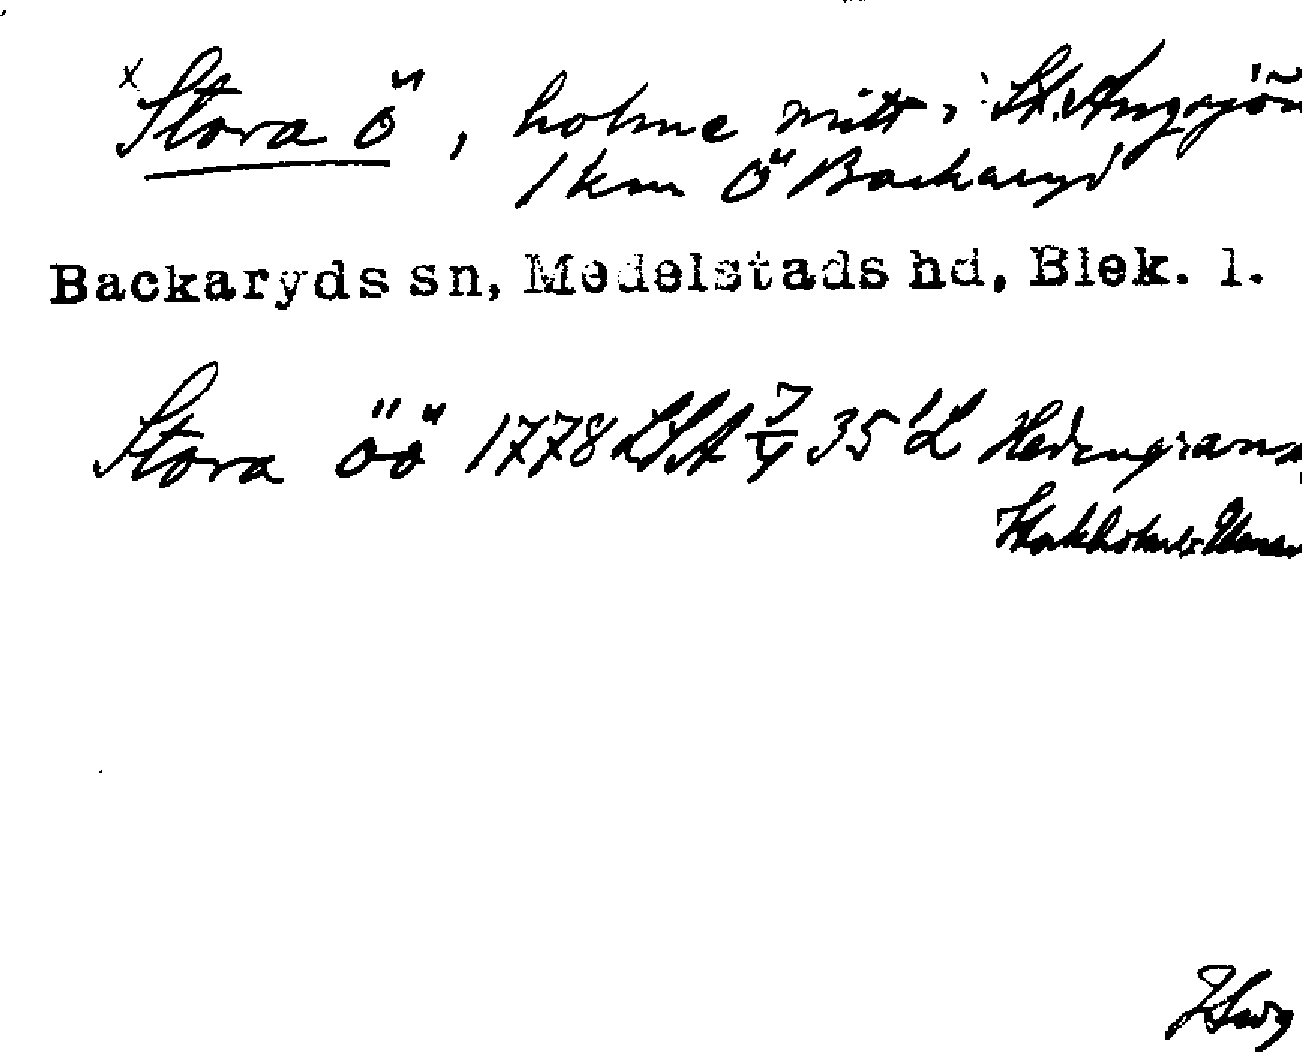 x Stora Ö, holme mitt i St. Angsjön
1 km Ö Backaryd
Backaryds sn, Medelstads hd, Blek. l.
Stora öö 1778 LSA 35
Stockholms